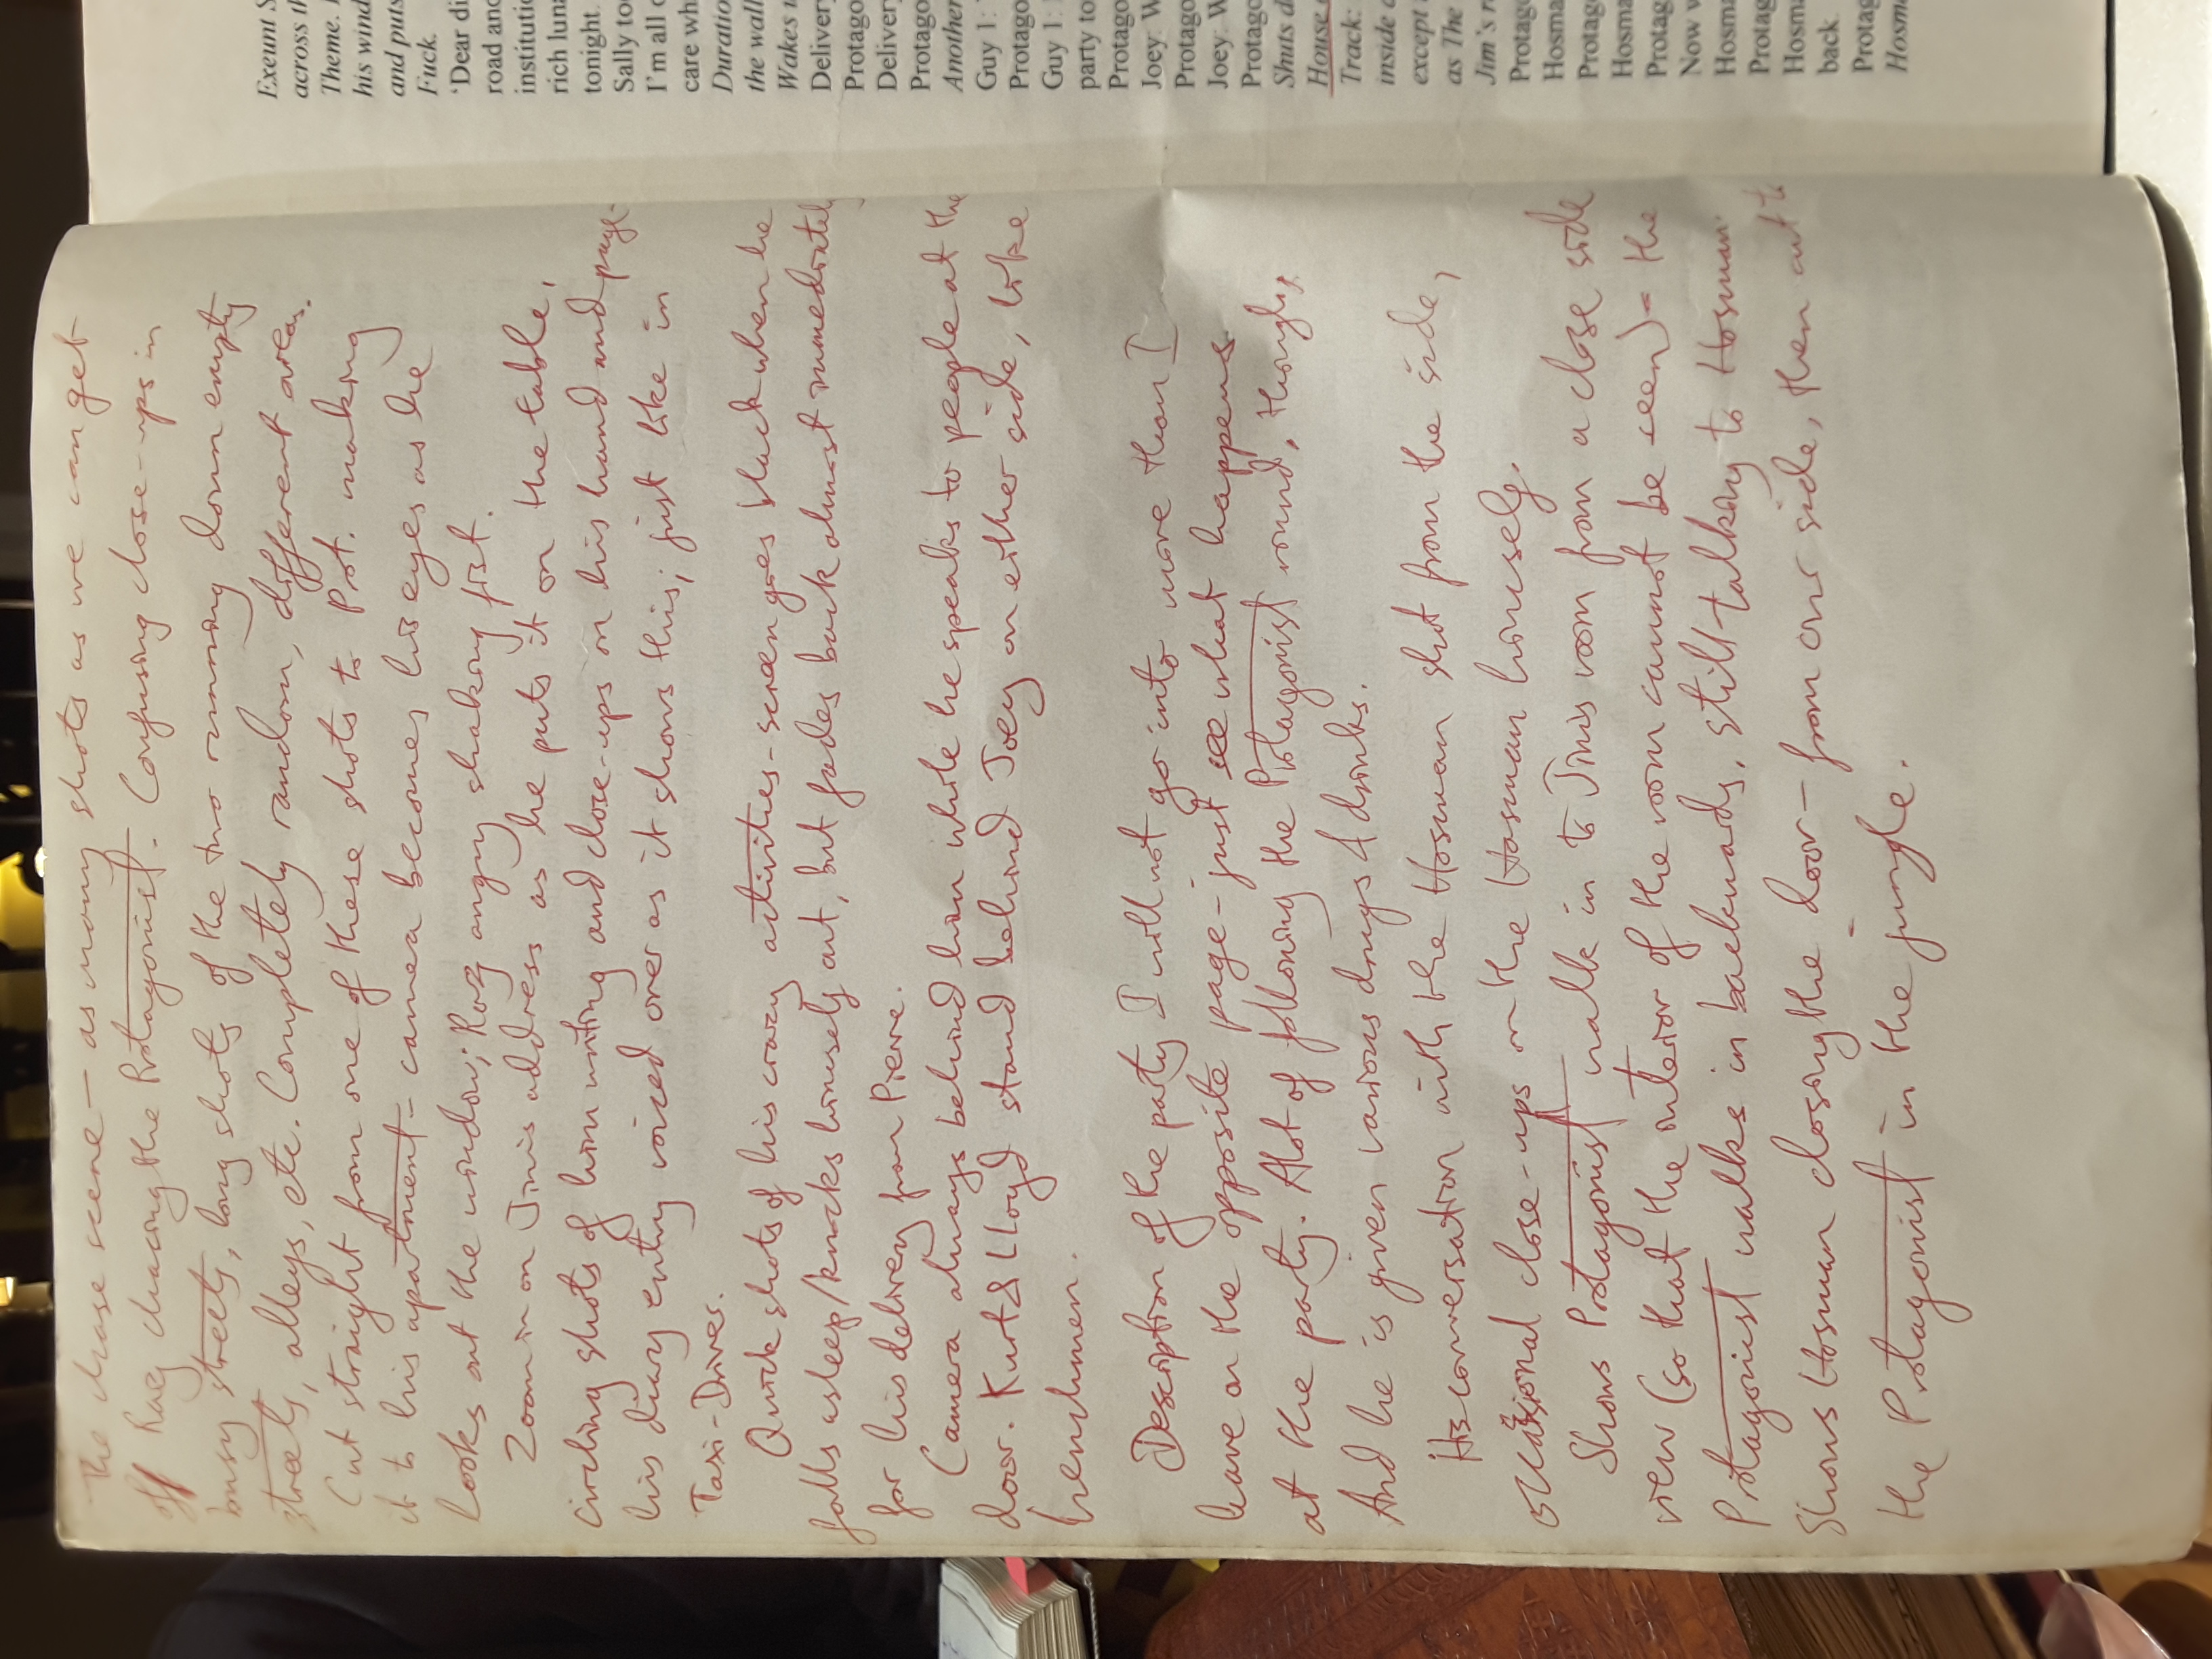 The chase scene – as many shots as we can get
off Razz chacing the Protagonist. Confusing close-ups in
busy streets, long shots of the two running down empty
streets, alleys, etc. Completely random, different areas.
Cut straight from one of these shots to Prot. making
it to his apartment – camera becomes his eyes as he
looks out the window; Razz angry shaking fist.
Zoom in on Jim's address as he puts it on the table,
circling shots of him writing and close-ups on his hand and page –
his diary entry voiced over as it shows this; just like in
Taxi-Driver.
Quick shots of his crazy activities – screen goes black when he
falls asleep/knocks himself out, but fades back almost immediately
for his delivery from Pierre.
Camera always behind him while he speaks to people at the
door. Kurt & Lloyd stand behind Joey on either side, like
henchmen.
Description of the party I will not go into more than I
have on the opposite page – just see what happens
at the party. Alot of following the Protagonist round, though,
And he is given various drugs & drinks.
His conversation with the Hosman shot from the side,
occasional close-ups on the Hosman himself.
Shows Protagonist walk in to Jim's room from a close side
view (so that the interior of the room cannot be seen) – the
Protagonist walks in backwards, still talking to Hosman.
Shows Hosman closing the door – from our side, then cut to
the Protagonist in the jungle.
Exeunt S
across th
Theme.
his wind
and puts
Fuck.
'Dear di
road and
instituti
rich luna
tonight.
Sally to
I'm all
care wh
Duratio
the wall
Wakes
Delivery
Protago
Delivery
Protago
Another
Guy 1:
Protago
Guy 1:
party to
Protago
Joey: W
Protago
Joey: W
Protago
Shuts d
House
Track:
inside
except
as The
Jim's r
Protago
Hosma
Protag
Hosma
Protag
Now w
Hosma
Protag
Hosma
back.
Protag
Hosma